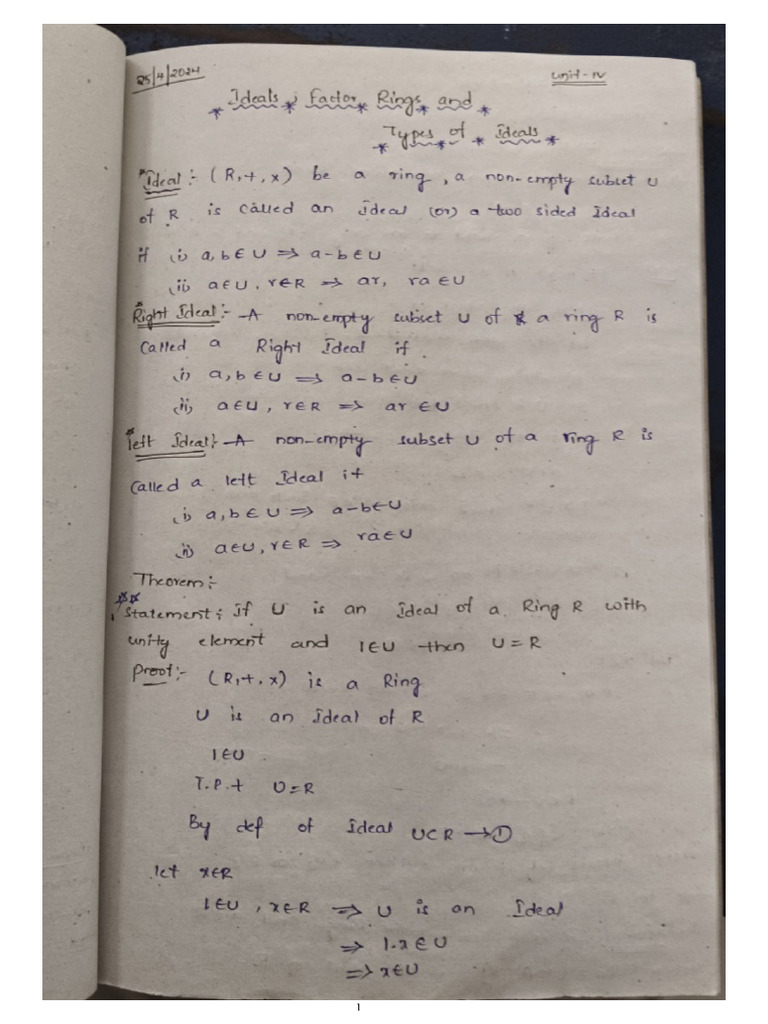 25/4/2024
Unit-IV
Ideals, Factor Rings and
Types of Ideals
Ideal:- (R,+,x) be a ring, a non-empty subset U
of R is called an ideal (or) a two sided Ideal
if (i) a,b∈U ⇒ a-b∈U
(ii) a∈U, r∈R ⇒ ar, ra∈U
Right Ideal:- A non-empty subset U of a ring R is
called a Right Ideal if
(i) a,b∈U ⇒ a-b∈U
(ii) a∈U, r∈R ⇒ ar∈U
left Ideal:- A non-empty subset U of a ring R is
called a left Ideal if
(i) a,b∈U ⇒ a-b∈U
(ii) a∈U, r∈R ⇒ ra∈U
Theorem:-
Statement: If U is an ideal of a Ring R with
unity element and 1∈U then U=R
Proof:- (R,+,x) is a Ring
U is an Ideal of R
1∈U
T.P.t U=R
By def of Ideal U⊂R →①
let x∈R
1∈U, x∈R ⇒ U is an Ideal
⇒ 1.x∈U
⇒ x∈U
1